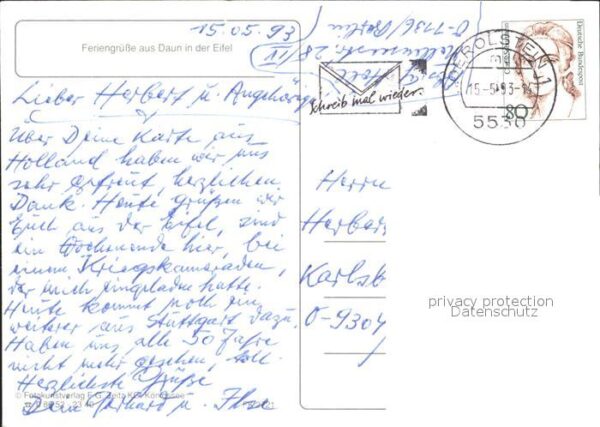 15.05.93
Feriengrüße aus Daun in der Eifel
Lieber Herbert u. Angehörige
Über Deine Karte aus
Holland haben wir uns
sehr gefreut, herzlichen
Dank. Heute grüßen wir
Euch aus der Eifel, sind
ein Wochenende hier, bei
einem Kriegskameraden,
der mich eingeladen hatte.
Heute kommt noch ein
weiterer aus Stuttgart dazu.
Haben uns alle 50 Jahre
nicht mehr gesehen, toll.
Herzlichste Grüße
Dein Gerhard u. Ilse
© Fotokunstverlag
O-1136/Berlin
Schreib mal wieder.
GEROLSTEIN 1
15-5-93-14
5530
Deutsche Bundespost
80
Herrn
Herber
Karlsb
O-9304
privacy protection
Datenschutz